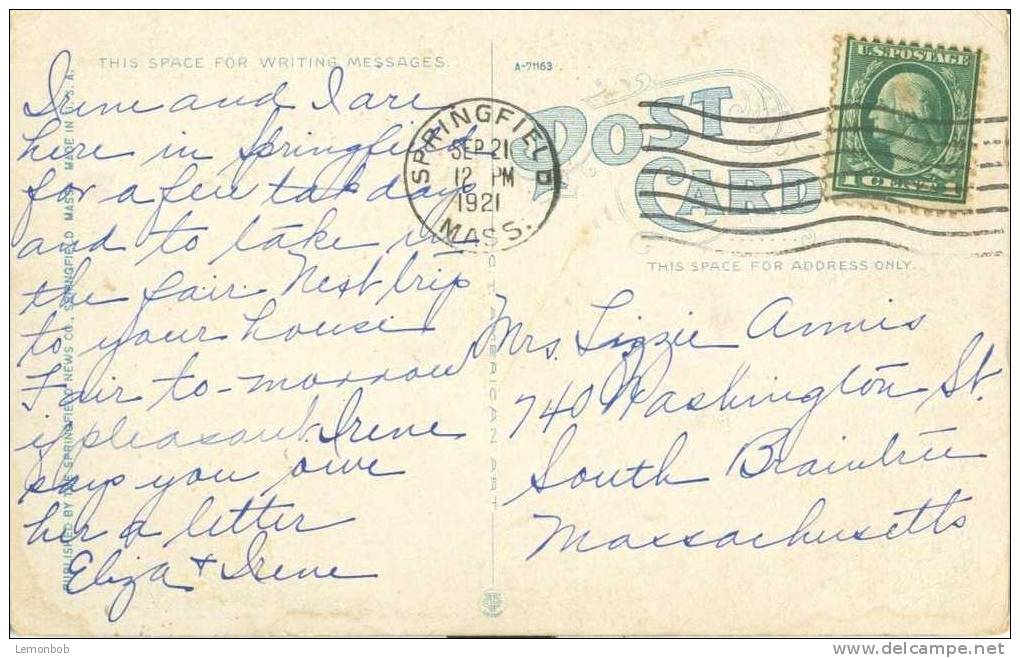 THIS SPACE FOR WRITING MESSAGES.
Irene and I are
here in Springfield
for a few
days
and to take in
the fair. Next trip
to your house
Fair to-morrow
if pleasant. Irene
says you owe
her a letter
Eliza + Irene
PUBLISHED BY THE SPRINGFIELD NEWS CO., SPRINGFIELD MASS. MADE IN U.S.A.
A-71163
POST
CARD
SPRINGFIELD
SEP 21
12 PM
1921
MASS.
U.S. POSTAGE
THIS SPACE FOR ADDRESS ONLY.
Mrs. Lizzie Annis
740 Washington St.
South Braintree
Massachusetts
AMERICAN ART
© Lemonbob
delcampe.net